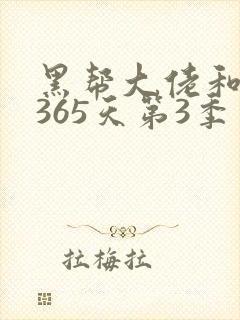 黑帮大佬和
365天第3季
拉梅拉